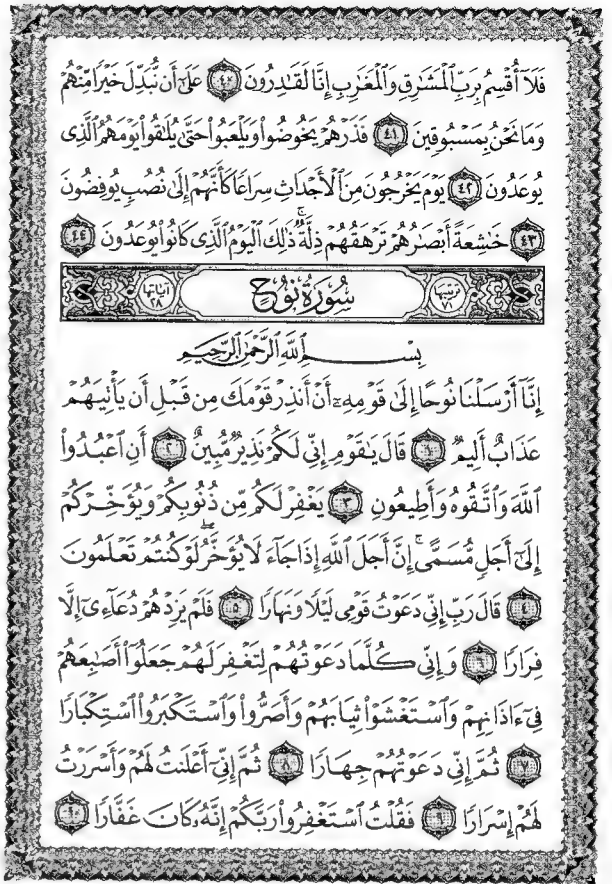 فَلَآ أُقْسِمُ بِرَبِّ ٱلْمَشَٰرِقِ وَٱلْمَغَٰرِبِ إِنَّا لَقَٰدِرُونَ ٤٠ عَلَىٰٓ أَن نُّبَدِّلَ خَيْرًا مِّنْهُمْ
وَمَا نَحْنُ بِمَسْبُوقِينَ ٤١ فَذَرْهُمْ يَخُوضُوا۟ وَيَلْعَبُوا۟ حَتَّىٰ يُلَٰقُوا۟ يَوْمَهُمُ ٱلَّذِى
يُوعَدُونَ ٤٢ يَوْمَ يَخْرُجُونَ مِنَ ٱلْأَجْدَاثِ سِرَاعًا كَأَنَّهُمْ إِلَىٰ نُصُبٍ يُوفِضُونَ
٤٣ خَٰشِعَةً أَبْصَٰرُهُمْ تَرْهَقُهُمْ ذِلَّةٌ ۚ ذَٰلِكَ ٱلْيَوْمُ ٱلَّذِى كَانُوا۟ يُوعَدُونَ ٤٤
ترتيبها ٧١ سُورَةُ نُوحٍ آياتها ٢٨
بِسْمِ ٱللَّهِ ٱلرَّحْمَٰنِ ٱلرَّحِيمِ
إِنَّآ أَرْسَلْنَا نُوحًا إِلَىٰ قَوْمِهِۦٓ أَنْ أَنذِرْ قَوْمَكَ مِن قَبْلِ أَن يَأْتِيَهُمْ
عَذَابٌ أَلِيمٌ ١ قَالَ يَٰقَوْمِ إِنِّى لَكُمْ نَذِيرٌ مُّبِينٌ ٢ أَنِ ٱعْبُدُوا۟
ٱللَّهَ وَٱتَّقُوهُ وَأَطِيعُونِ ٣ يَغْفِرْ لَكُم مِّن ذُنُوبِكُمْ وَيُؤَخِّرْكُمْ
إِلَىٰٓ أَجَلٍ مُّسَمًّى ۚ إِنَّ أَجَلَ ٱللَّهِ إِذَا جَآءَ لَا يُؤَخَّرُ ۖ لَوْ كُنتُمْ تَعْلَمُونَ
٤ قَالَ رَبِّ إِنِّى دَعَوْتُ قَوْمِى لَيْلًا وَنَهَارًا ٥ فَلَمْ يَزِدْهُمْ دُعَآءِىٓ إِلَّا
فِرَارًا ٦ وَإِنِّى كُلَّمَا دَعَوْتُهُمْ لِتَغْفِرَ لَهُمْ جَعَلُوٓا۟ أَصَٰبِعَهُمْ
فِىٓ ءَاذَانِهِمْ وَٱسْتَغْشَوْا۟ ثِيَابَهُمْ وَأَصَرُّوا۟ وَٱسْتَكْبَرُوا۟ ٱسْتِكْبَارًا
٧ ثُمَّ إِنِّى دَعَوْتُهُمْ جِهَارًا ٨ ثُمَّ إِنِّىٓ أَعْلَنتُ لَهُمْ وَأَسْرَرْتُ
لَهُمْ إِسْرَارًا ٩ فَقُلْتُ ٱسْتَغْفِرُوا۟ رَبَّكُمْ إِنَّهُۥ كَانَ غَفَّارًا ١٠